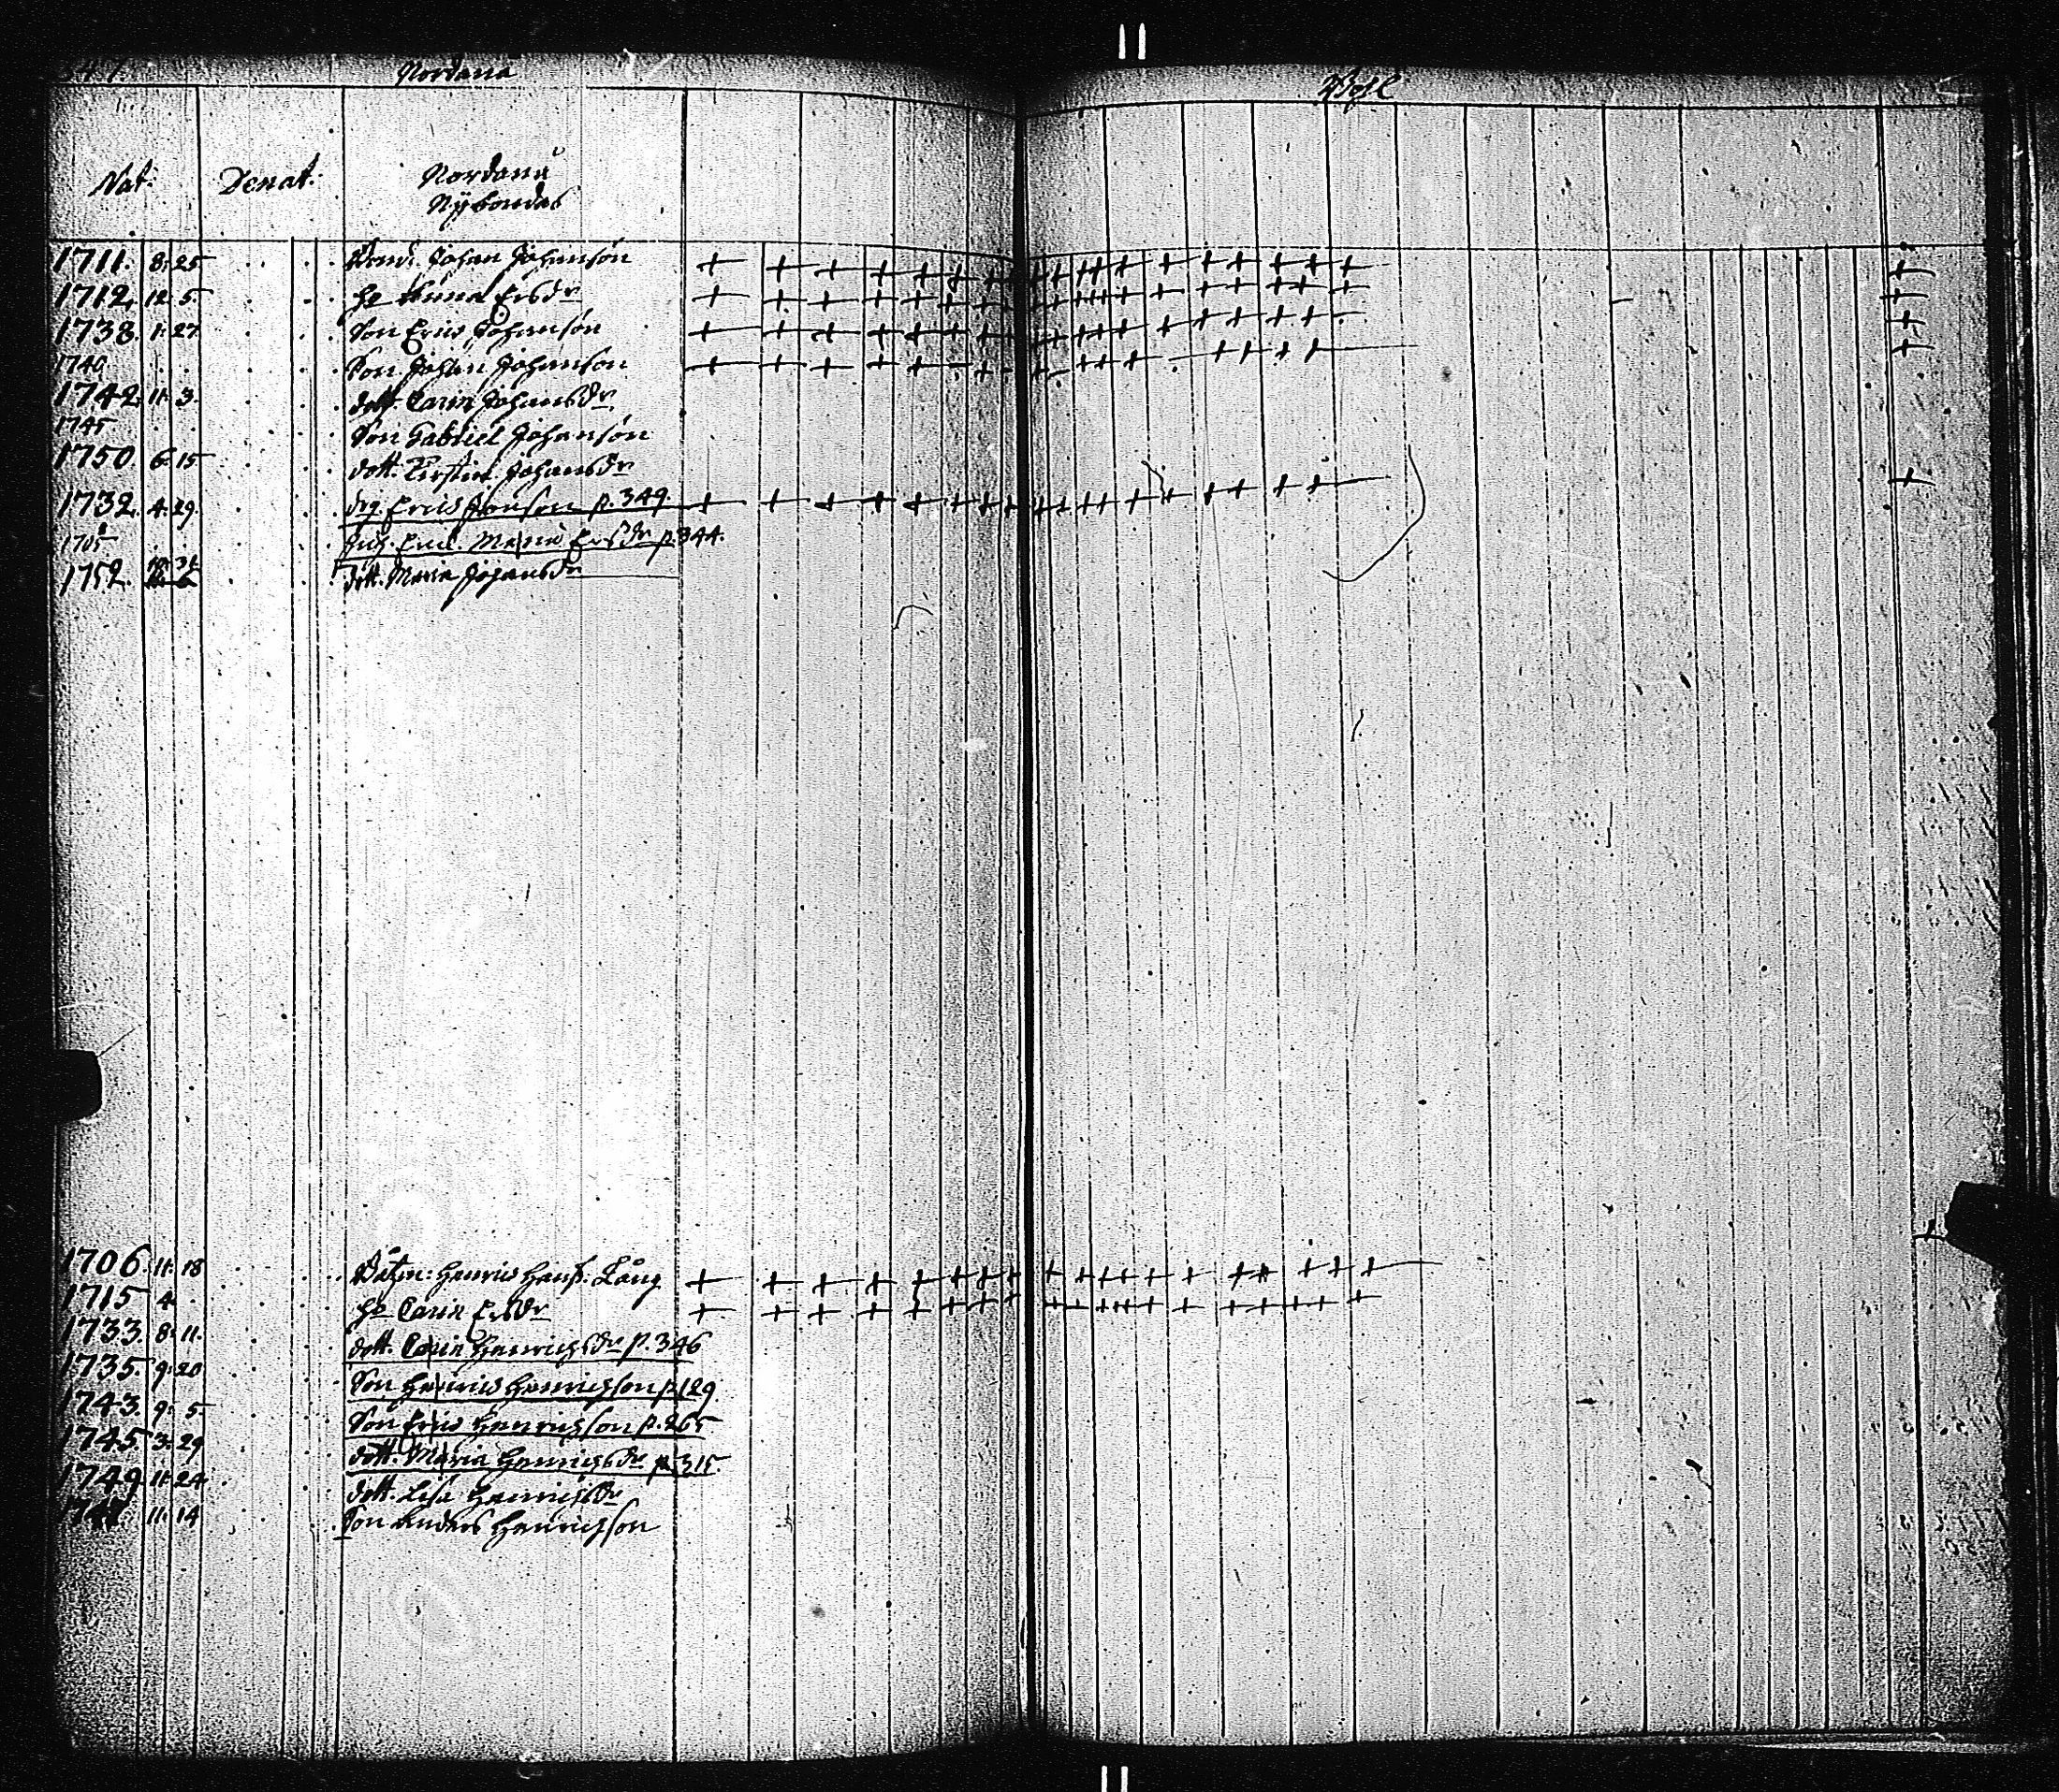 Nordanå
Nat: Denat: Nordanå
Nÿbondas
1711. 8. 25 Bond. Johan Johansson
1712. 12. 5. ho Anna Ersdr
1738. 1. 27. Son Eric Johansson
1740 Son Johan Johansson
1742. 11. 3. dott. Carin Johansdr
1745 Son Gabriel Johansson
1750 6. 15 dott. Kirstin Johansdr
1732. 4. 29. drg. Eric p. 349.
Maria Ersdr p. 344.
1752. dott. Maria Johansdr
1706. 11. 18 Båtzm: Henric Hanss: Lång
1715 4 ho Carin Ersdr
1733. 8. 11. dott. Carin Henricsdr p. 346
1735. 9. 20 Son Henric Henricsson p. 129.
1743. 9. 5. Son Eric Henricsson p. 265
1745 3. 29 dott. Maria Henricsdr p. 315.
1749 11. 24 dott. Lisa Henricsdr
11. 14 Son Anders Henricsson